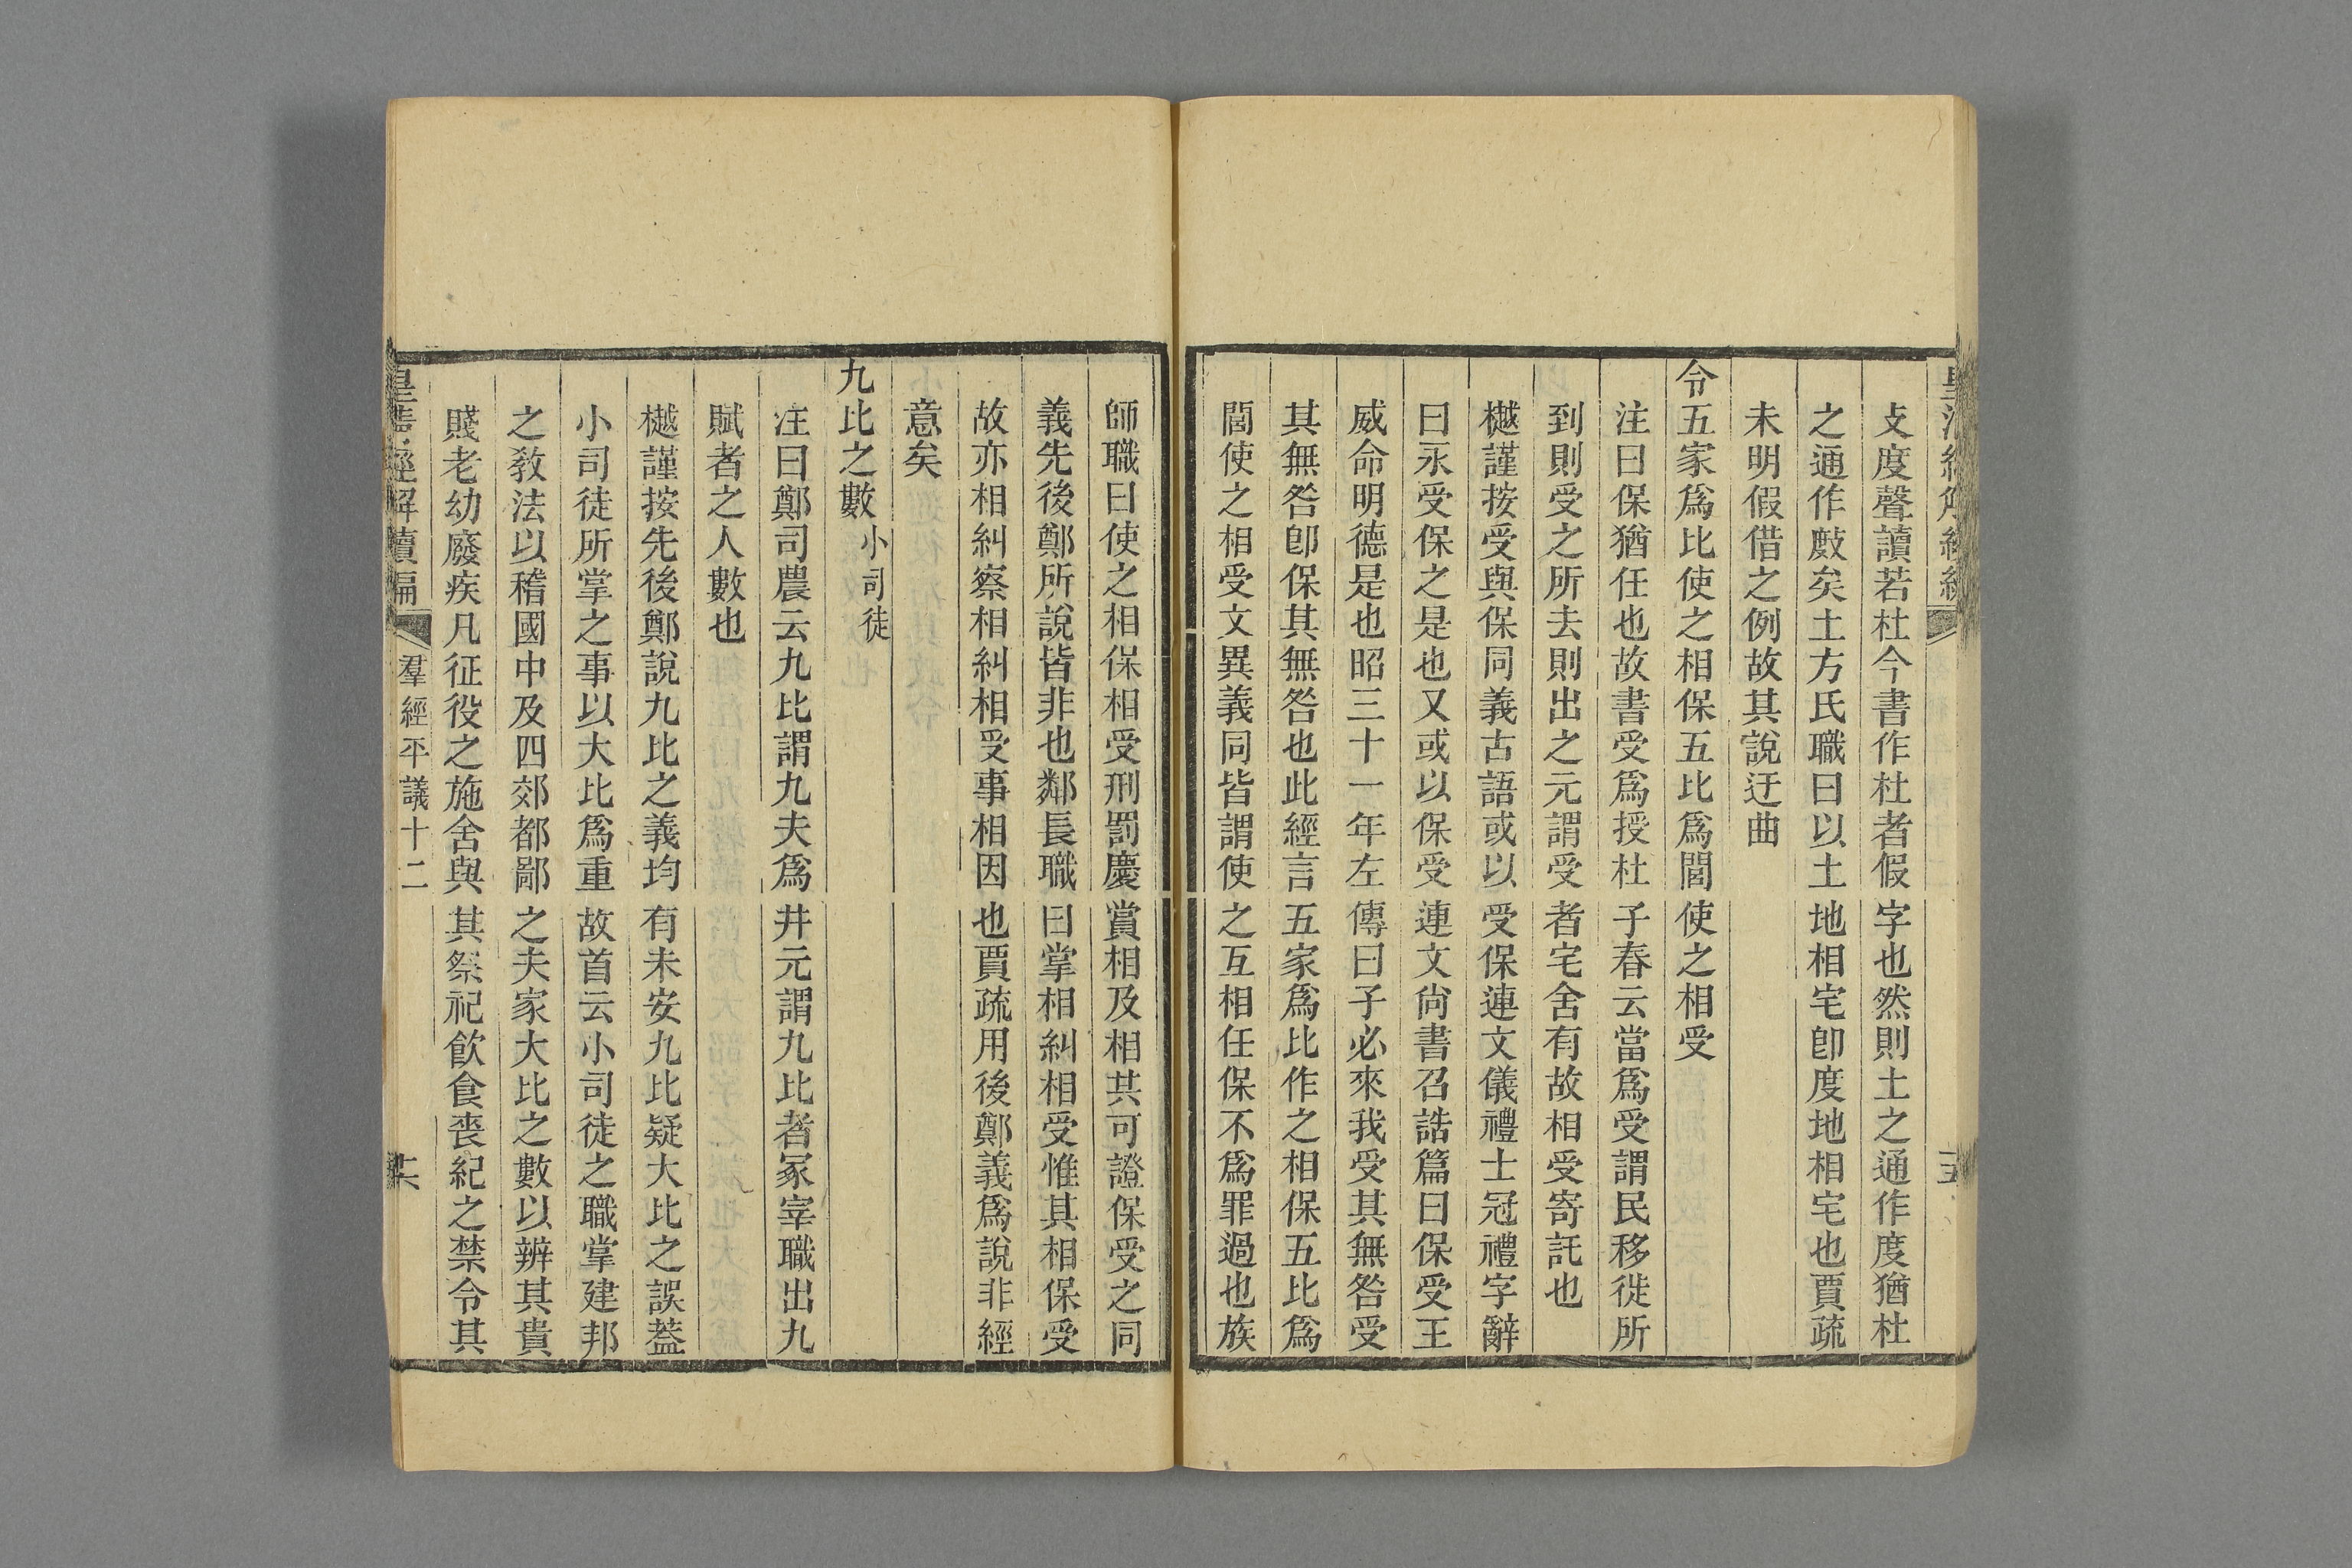 攴度聲讀若杜今書作杜者假字也然則土之通作度猶杜
之通作㪇矣土方氏職曰以土地相宅卽度地相宅也賈疏
未明假借之例故其說迂曲
令五家爲比使之相保五比爲閭使之相受
注曰保猶任也故書受爲授杜子春云當爲受謂民移徙所
到則受之所去則出之元謂受者宅舍有故相受寄託也
樾謹按受與保同義古語或以受保連文儀禮士冠禮字辭
曰永受保之是也又或以保受連文尙書召誥篇曰保受王
威命明德是也昭三十一年左傳曰子必來我受其無咎受
其無咎卽保其無咎也此經言五家爲比作之相保五比爲
閭使之相受文異義同皆謂使之互相任保不爲罪過也族
師職曰使之相保相受刑罰慶賞相及相共可證保受之同
義先後鄭所說皆非也鄰長職曰掌相糾相受惟其相保受
故亦相糾察相糾相受事相因也賈疏用後鄭義爲說非經
意矣
九比之數小司徒
注曰鄭司農云九比謂九夫爲井元謂九比者冢宰職出九
賦者之人數也
樾謹按先後鄭說九比之義均有未安九比疑大比之誤蓋
小司徒所掌之事以大比爲重故首云小司徒之職掌建邦
之敎法以稽國中及四郊都鄙之夫家大比之數以辨其貴
賤老幼廢疾凡征役之施舍與其祭祀飮食喪紀之禁令其
皇淸經解續編 羣經平議十二 十六